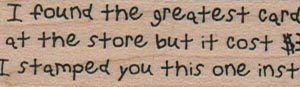 I found the greatest card
at the store but it cost
I stamped you this one inst